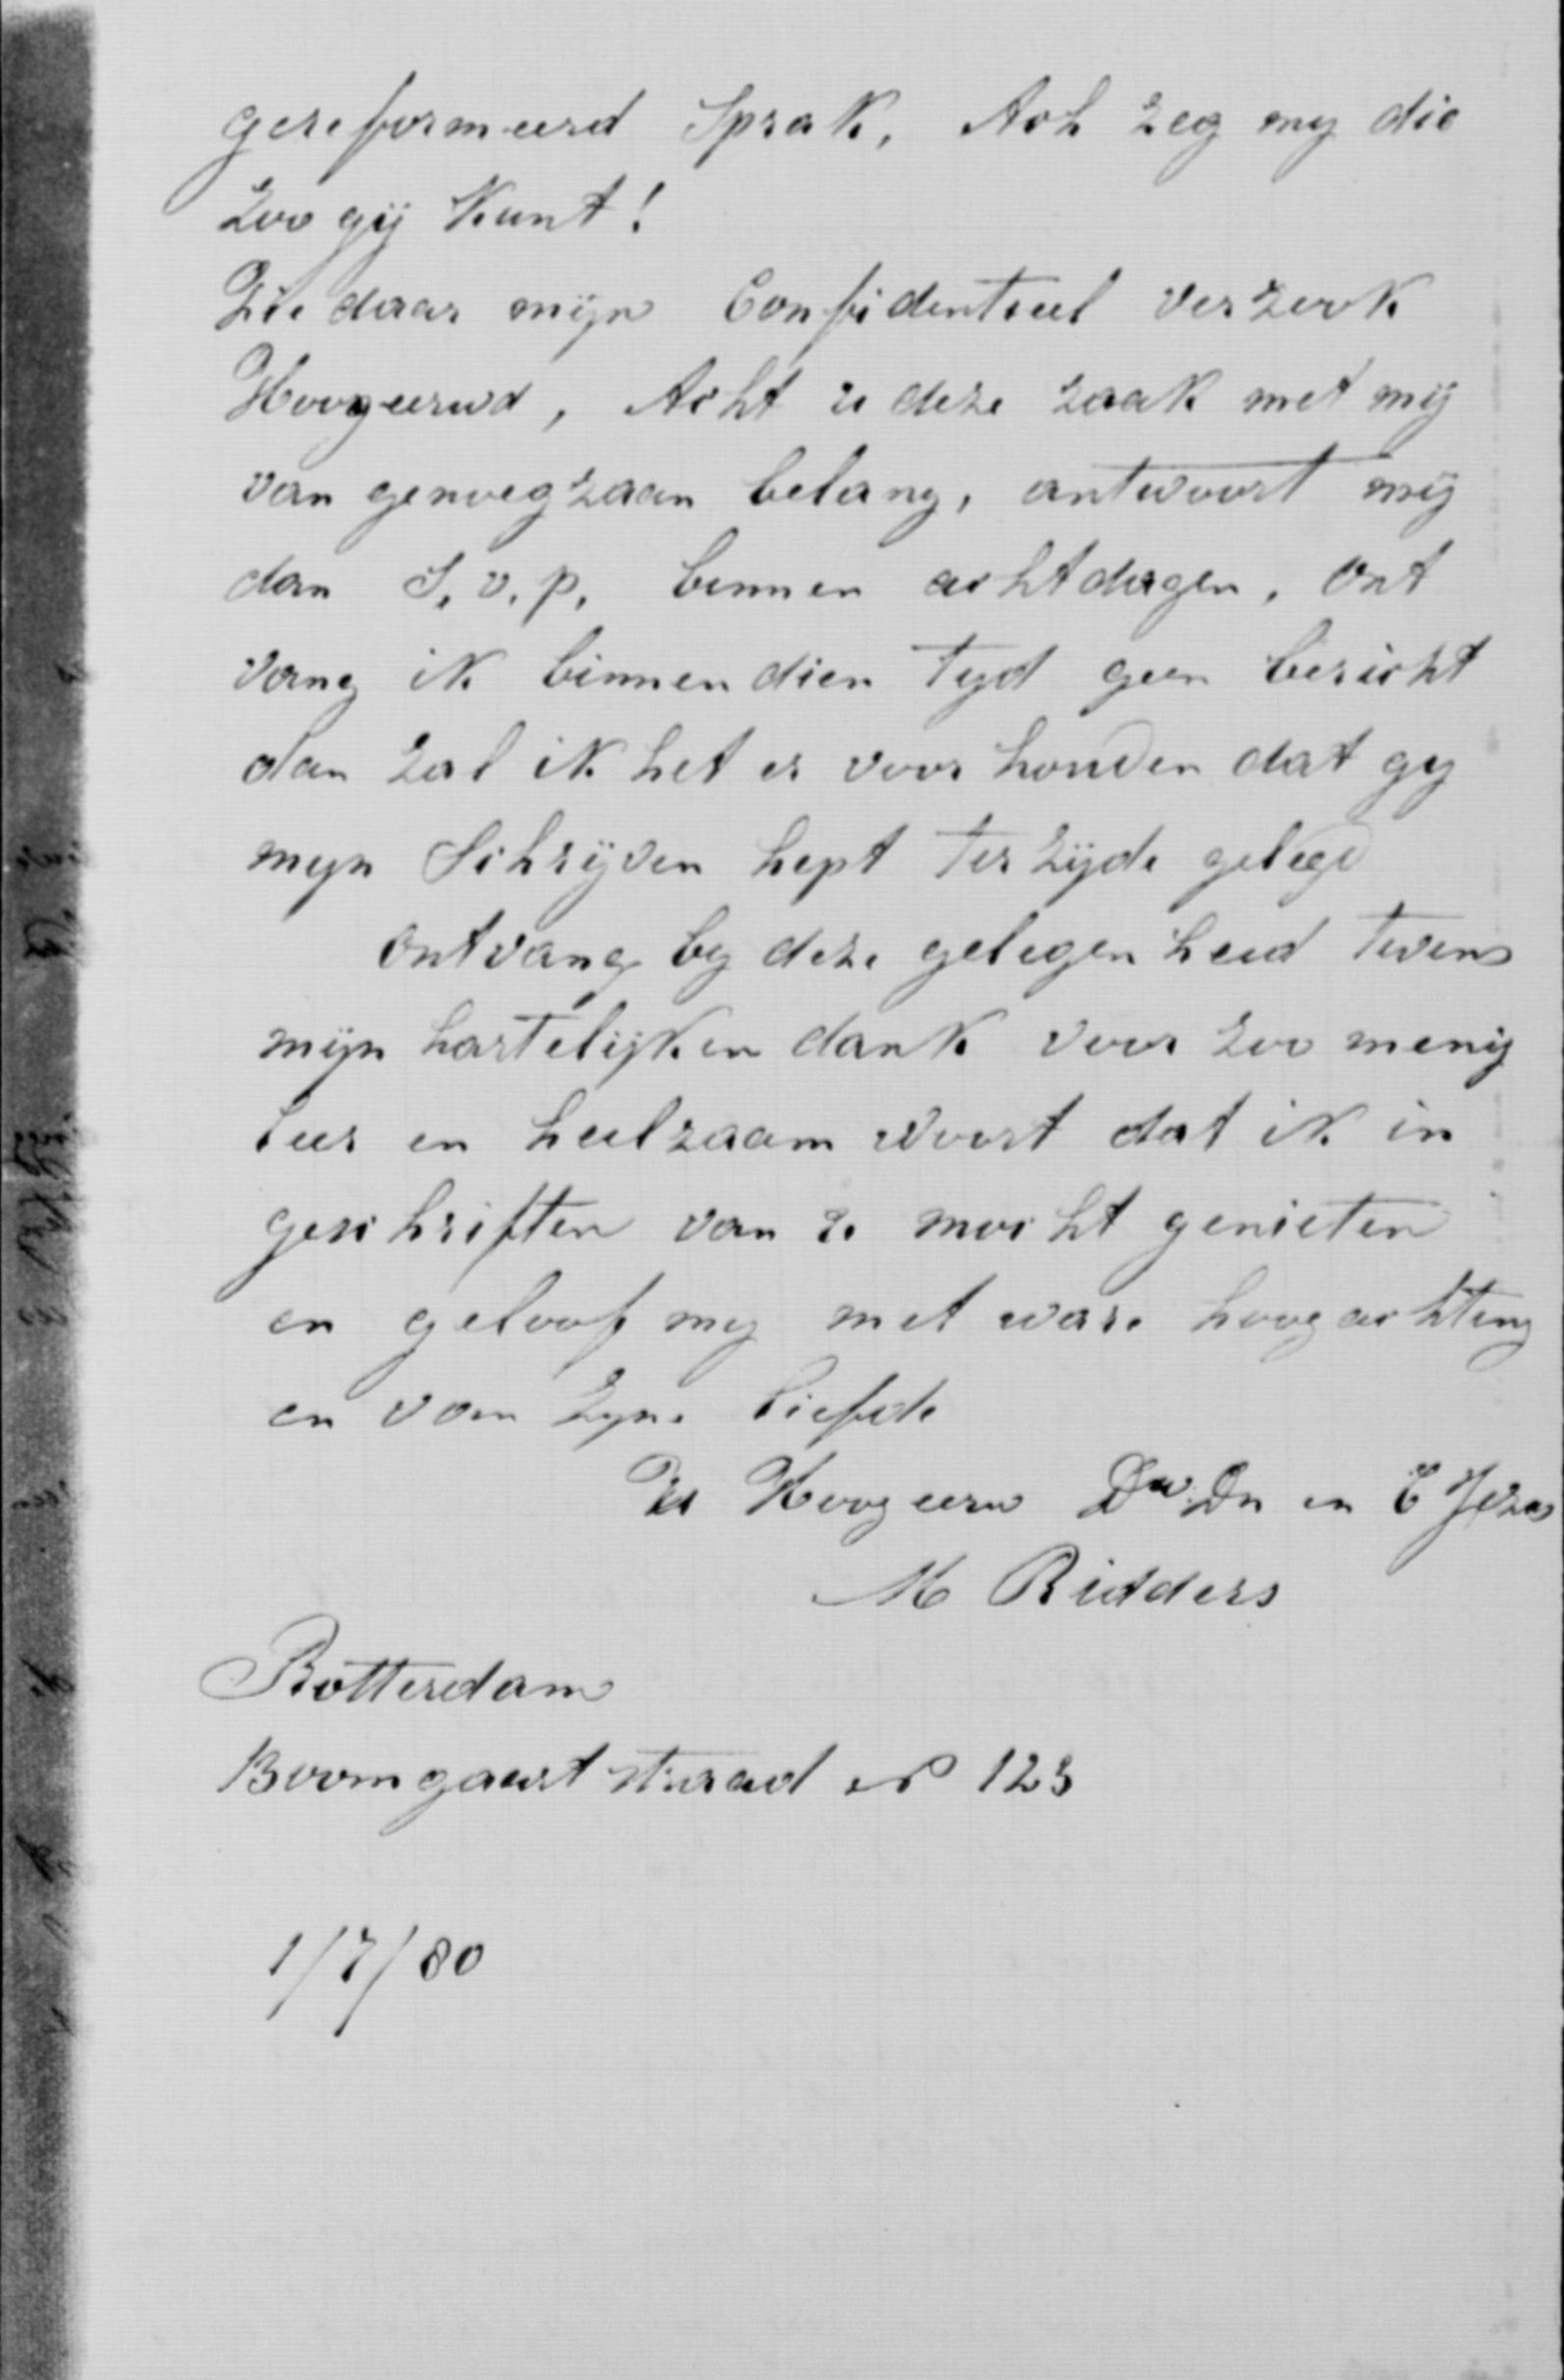 gereformeerd Sprak, Ach zeg my die
zoo gij Kunt!
Zie daar mijn Confidentieel verzoek
Hoogeerwd, Acht u deze zaak met mij
van genoegzaan belang, antwoort mij
dan S.v.p. binnen achtdagen, Ont
vang ik binnen dien tyd geen bericht
dan zal ik het er voor houden dat gy
mijn Schrijven hept terzijde gelegd
Ontvang by deze gelegenheid tevens
mijn hartelijken dank voor zoo menig
leer en heilzaam woort dat ik in
geschriften van u mocht genieten
en geloof my met ware hoogachting
en vom zyne liefde
Us Hoogeerw Dw Dn en
M Ridders
Rotterdam
Boomgaart straad no 123
1/7/80